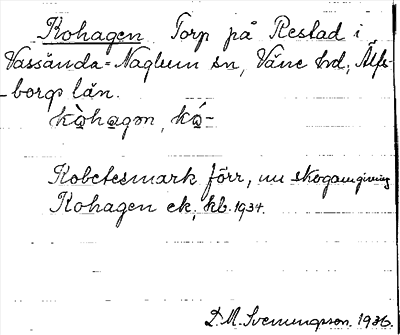 Kohagen Torp på Restad i
Vassända-Naglum sn, Väne hd, Älfs-
borgs län.
kò̱ha̱gən, kó̱-
Kobetesmark förr, nu skogsomgivning
Kohagen ek, kb. 1934.
D. M. Svenungsson. 1936.